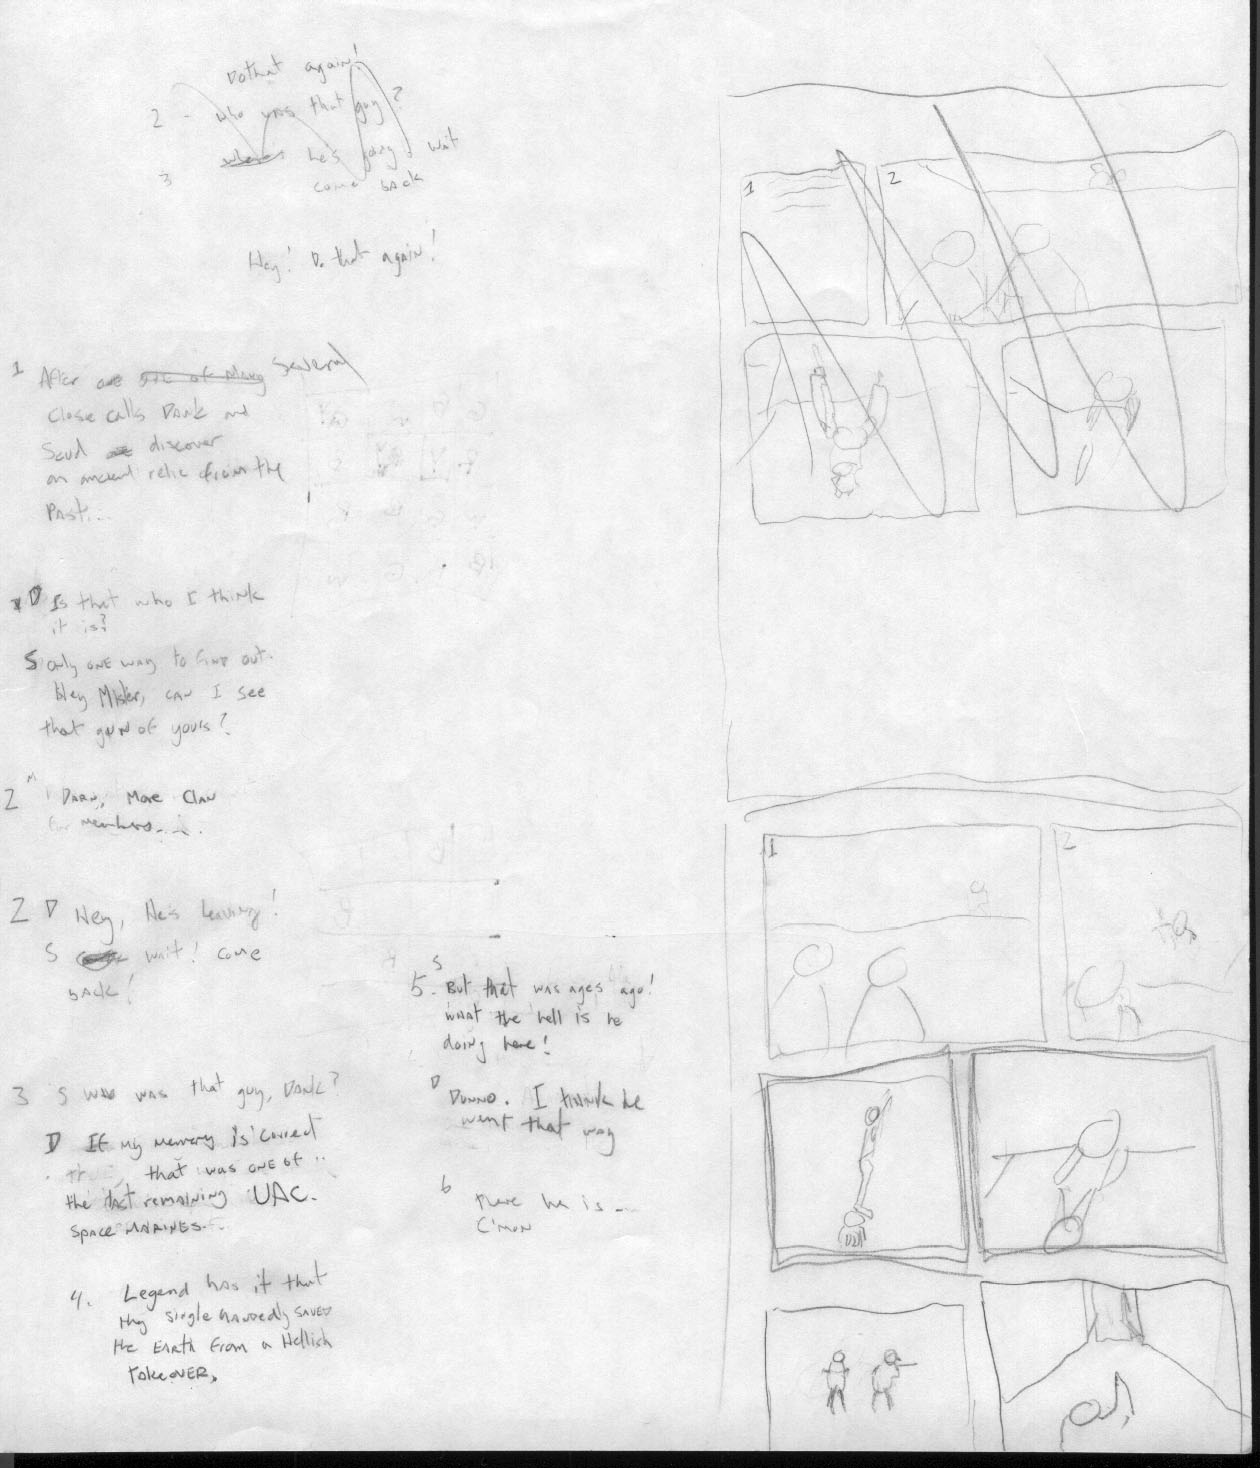 Do that again!
2 - who was that guy?
3 where he's going? wait
come back
Hey! Do that again!
1 After one of many several
close calls Dank and
Scud discover
an ancient relic from the
Past...
D Is that who I think
it is?
S Only one way to find out.
Hey Mister, can I see
that gun of yours?
2 M Darn, More Clan
members....
2 D Hey, He's leaving!
S wait! come
back!
3 S who was that guy, Dank?
D If my memory is correct
that was one of
the last remaining UAC.
Space MARINES.
4. Legend has it that
they single handedly saved
the Earth from a Hellish
takeover.
S
5. But that was ages ago!
what the hell is he
doing here!
D Dunno. I think he
went that way
6 there he is...
C'mon
1
2
1
2